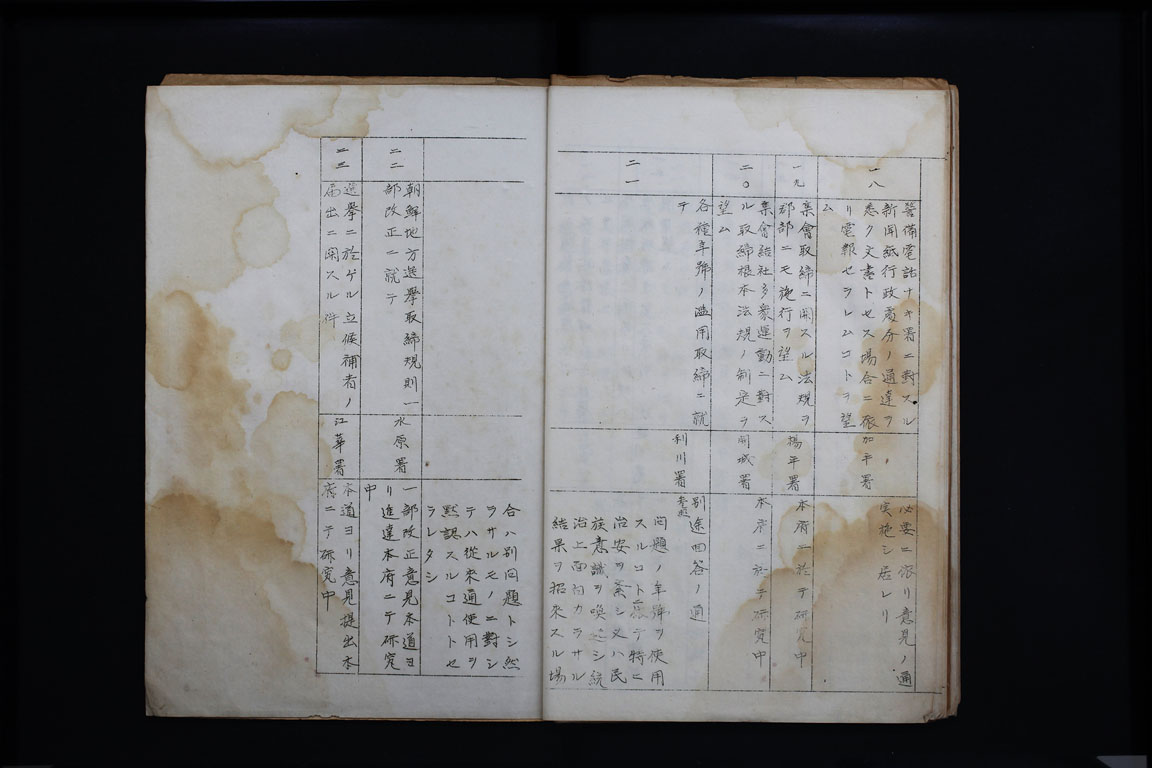 一八
警備電話ナキ署ニ對スル
新聞紙行政處分ノ通達ヲ
悉ク文書トセス場合ニ依
リ電報セラレムコトヲ望
ム
加平署
必要ニ依リ意見ノ通
実施シ居レリ
一九
集會取締ニ関スル法規ヲ
郡部ニモ施行ヲ望ム
楊平署
本府ニ於テ研究中
二〇
集會結社多衆運動ニ對ス
ル取締根本法規ノ制定ヲ
望ム
開城署
本府ニ於テ研究中
二一
各種年號ノ濫用取締ニ就
テ
利川署
別途回答ノ通
問題ノ年號ヲ使用
スルコトニ依テ特ニ
治安ヲ紊シ又ハ民
族意識ヲ喚起シ統
治上面白カラサル
結果ヲ招来スル場
合ハ別問題トシ然
ラサルモノニ對シ
テハ從来通使用ヲ
黙認スルコトトセ
ラレタシ
二二
朝鮮地方選擧取締規則一
部改正ニ就テ
水原署
一部改正意見本道ヨ
リ進達本府ニテ研究
中
二三
選擧ニ於ケル立候補者ノ
届出ニ関スル件
江華署
本道ヨリ意見提出本
府ニテ研究中